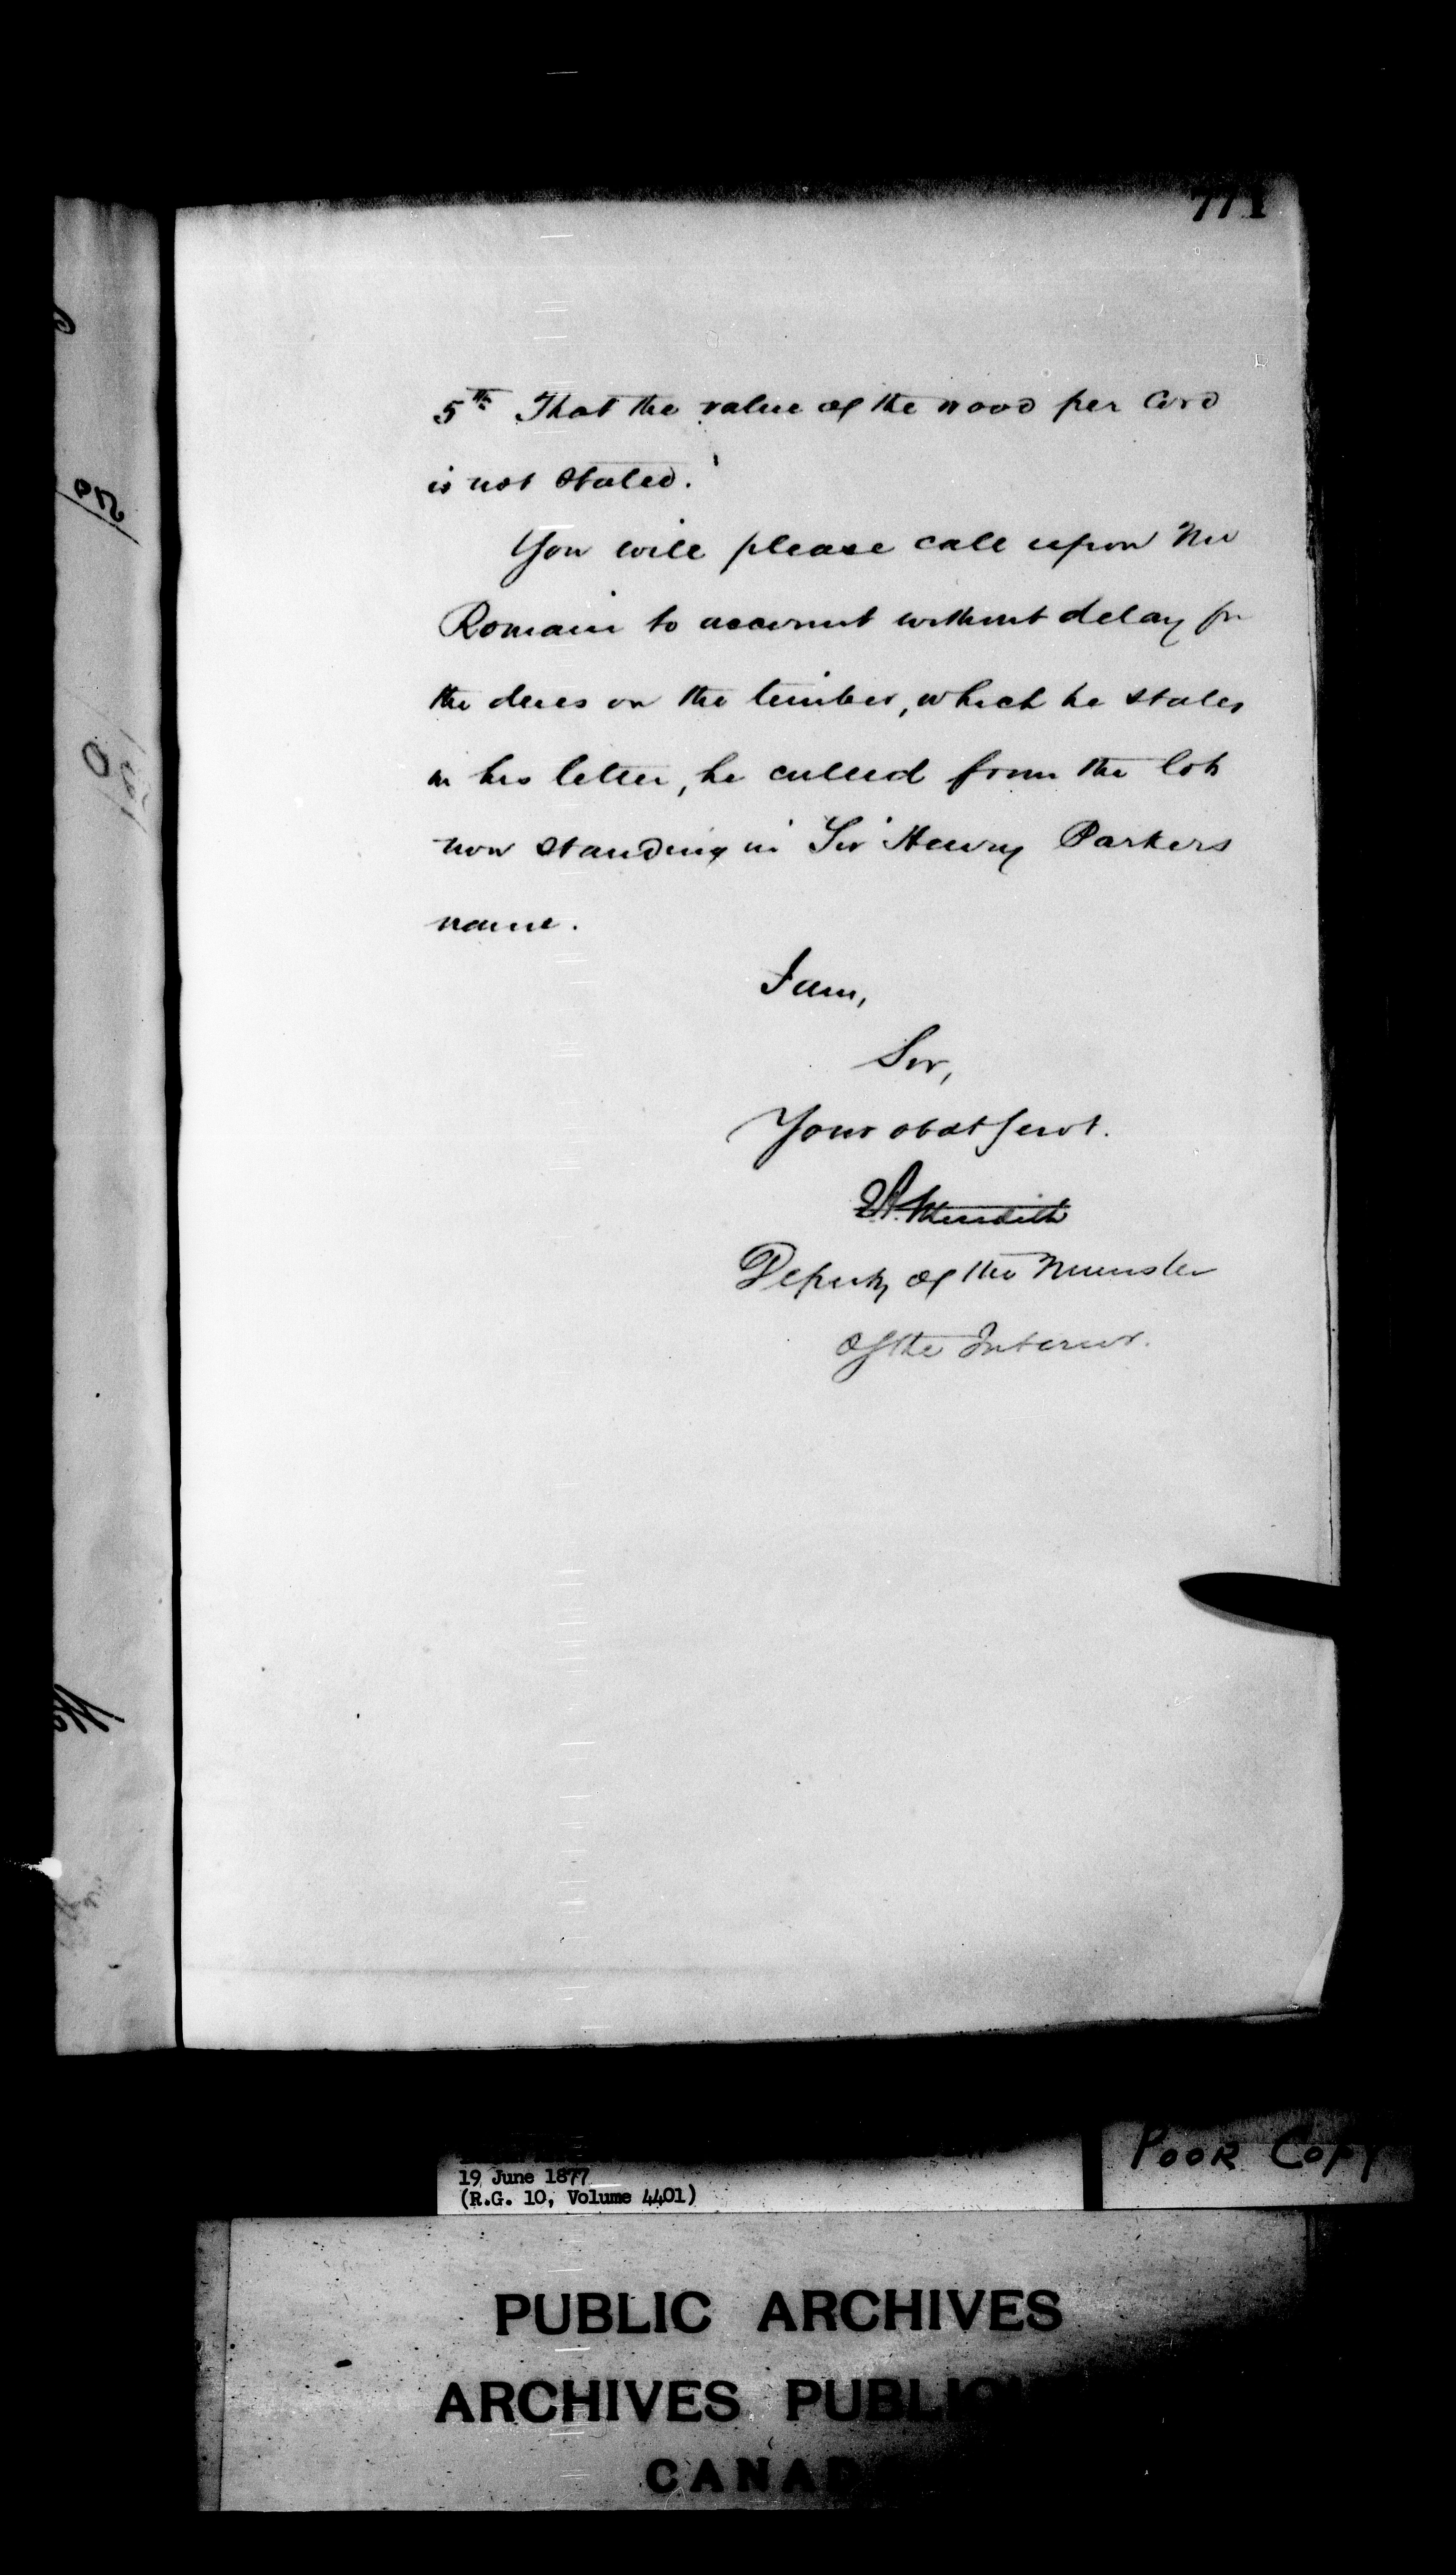 771
5th That the value of the wood per Cord
is not stated.
You will please call upon Mr
Romain to account without delay for
the dues on the timber, which he states
in his letter, he culled from the lots
now standing in Sir Henry Parkers
name.
I am,
Sir,
Your obdt servt.
Meredith
Deputy of the Minister
of the Interior.
19 June 1877
(R.G. 10, Volume 4401)
POOR COPY
PUBLIC ARCHIVES
ARCHIVES PUBLIQ
CANAD